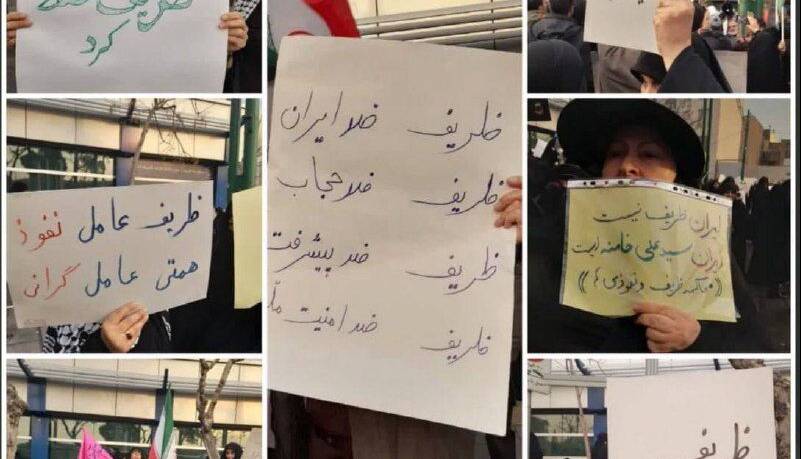 کرد
ظریف ضد ایران
ظریف ضد حجاب
ظریف ضد پیشرفت
ظریف ضد امنیت
ظریف عامل نفوذ
همتی عامل گرانی
ایران ظریف نیست
ایران سید علی خامنه است
ظریف و نفوذی ها
ظریف